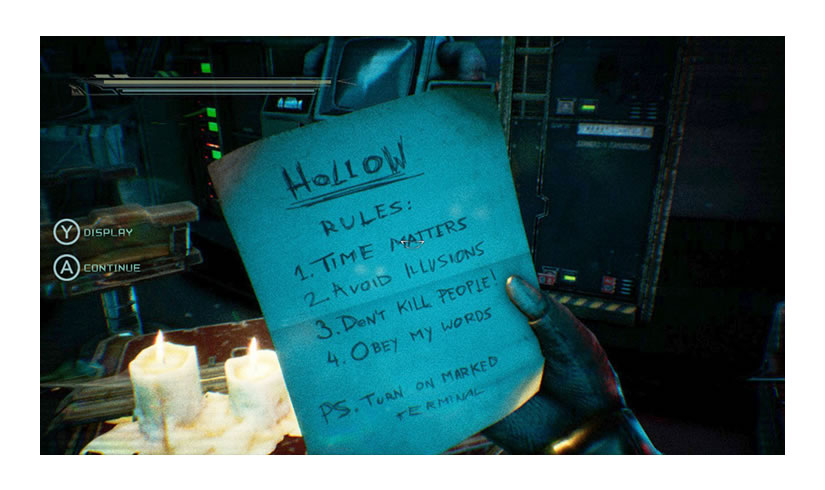 HOLLOW
RULES:
1. TIME MATTERS
2. AVOID ILLUSIONS
3. DON'T KILL PEOPLE!
4. OBEY MY WORDS
PS. TURN ON MARKED
TERMINAL
Y DISPLAY
A CONTINUE